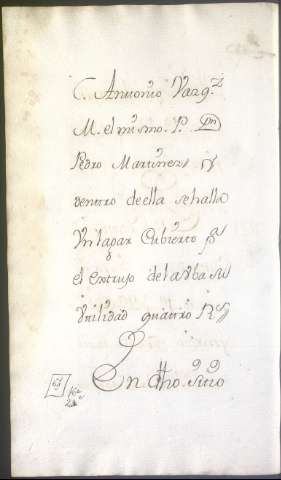 C. Antonio Varg.z
M. el mismo. P. Dn
Pedro Martinez y
dentro de ella se halla
Un lagar Cubierto pa
el extrujo de la Uba su
Utilidad quatro Rs
En dho. sitio